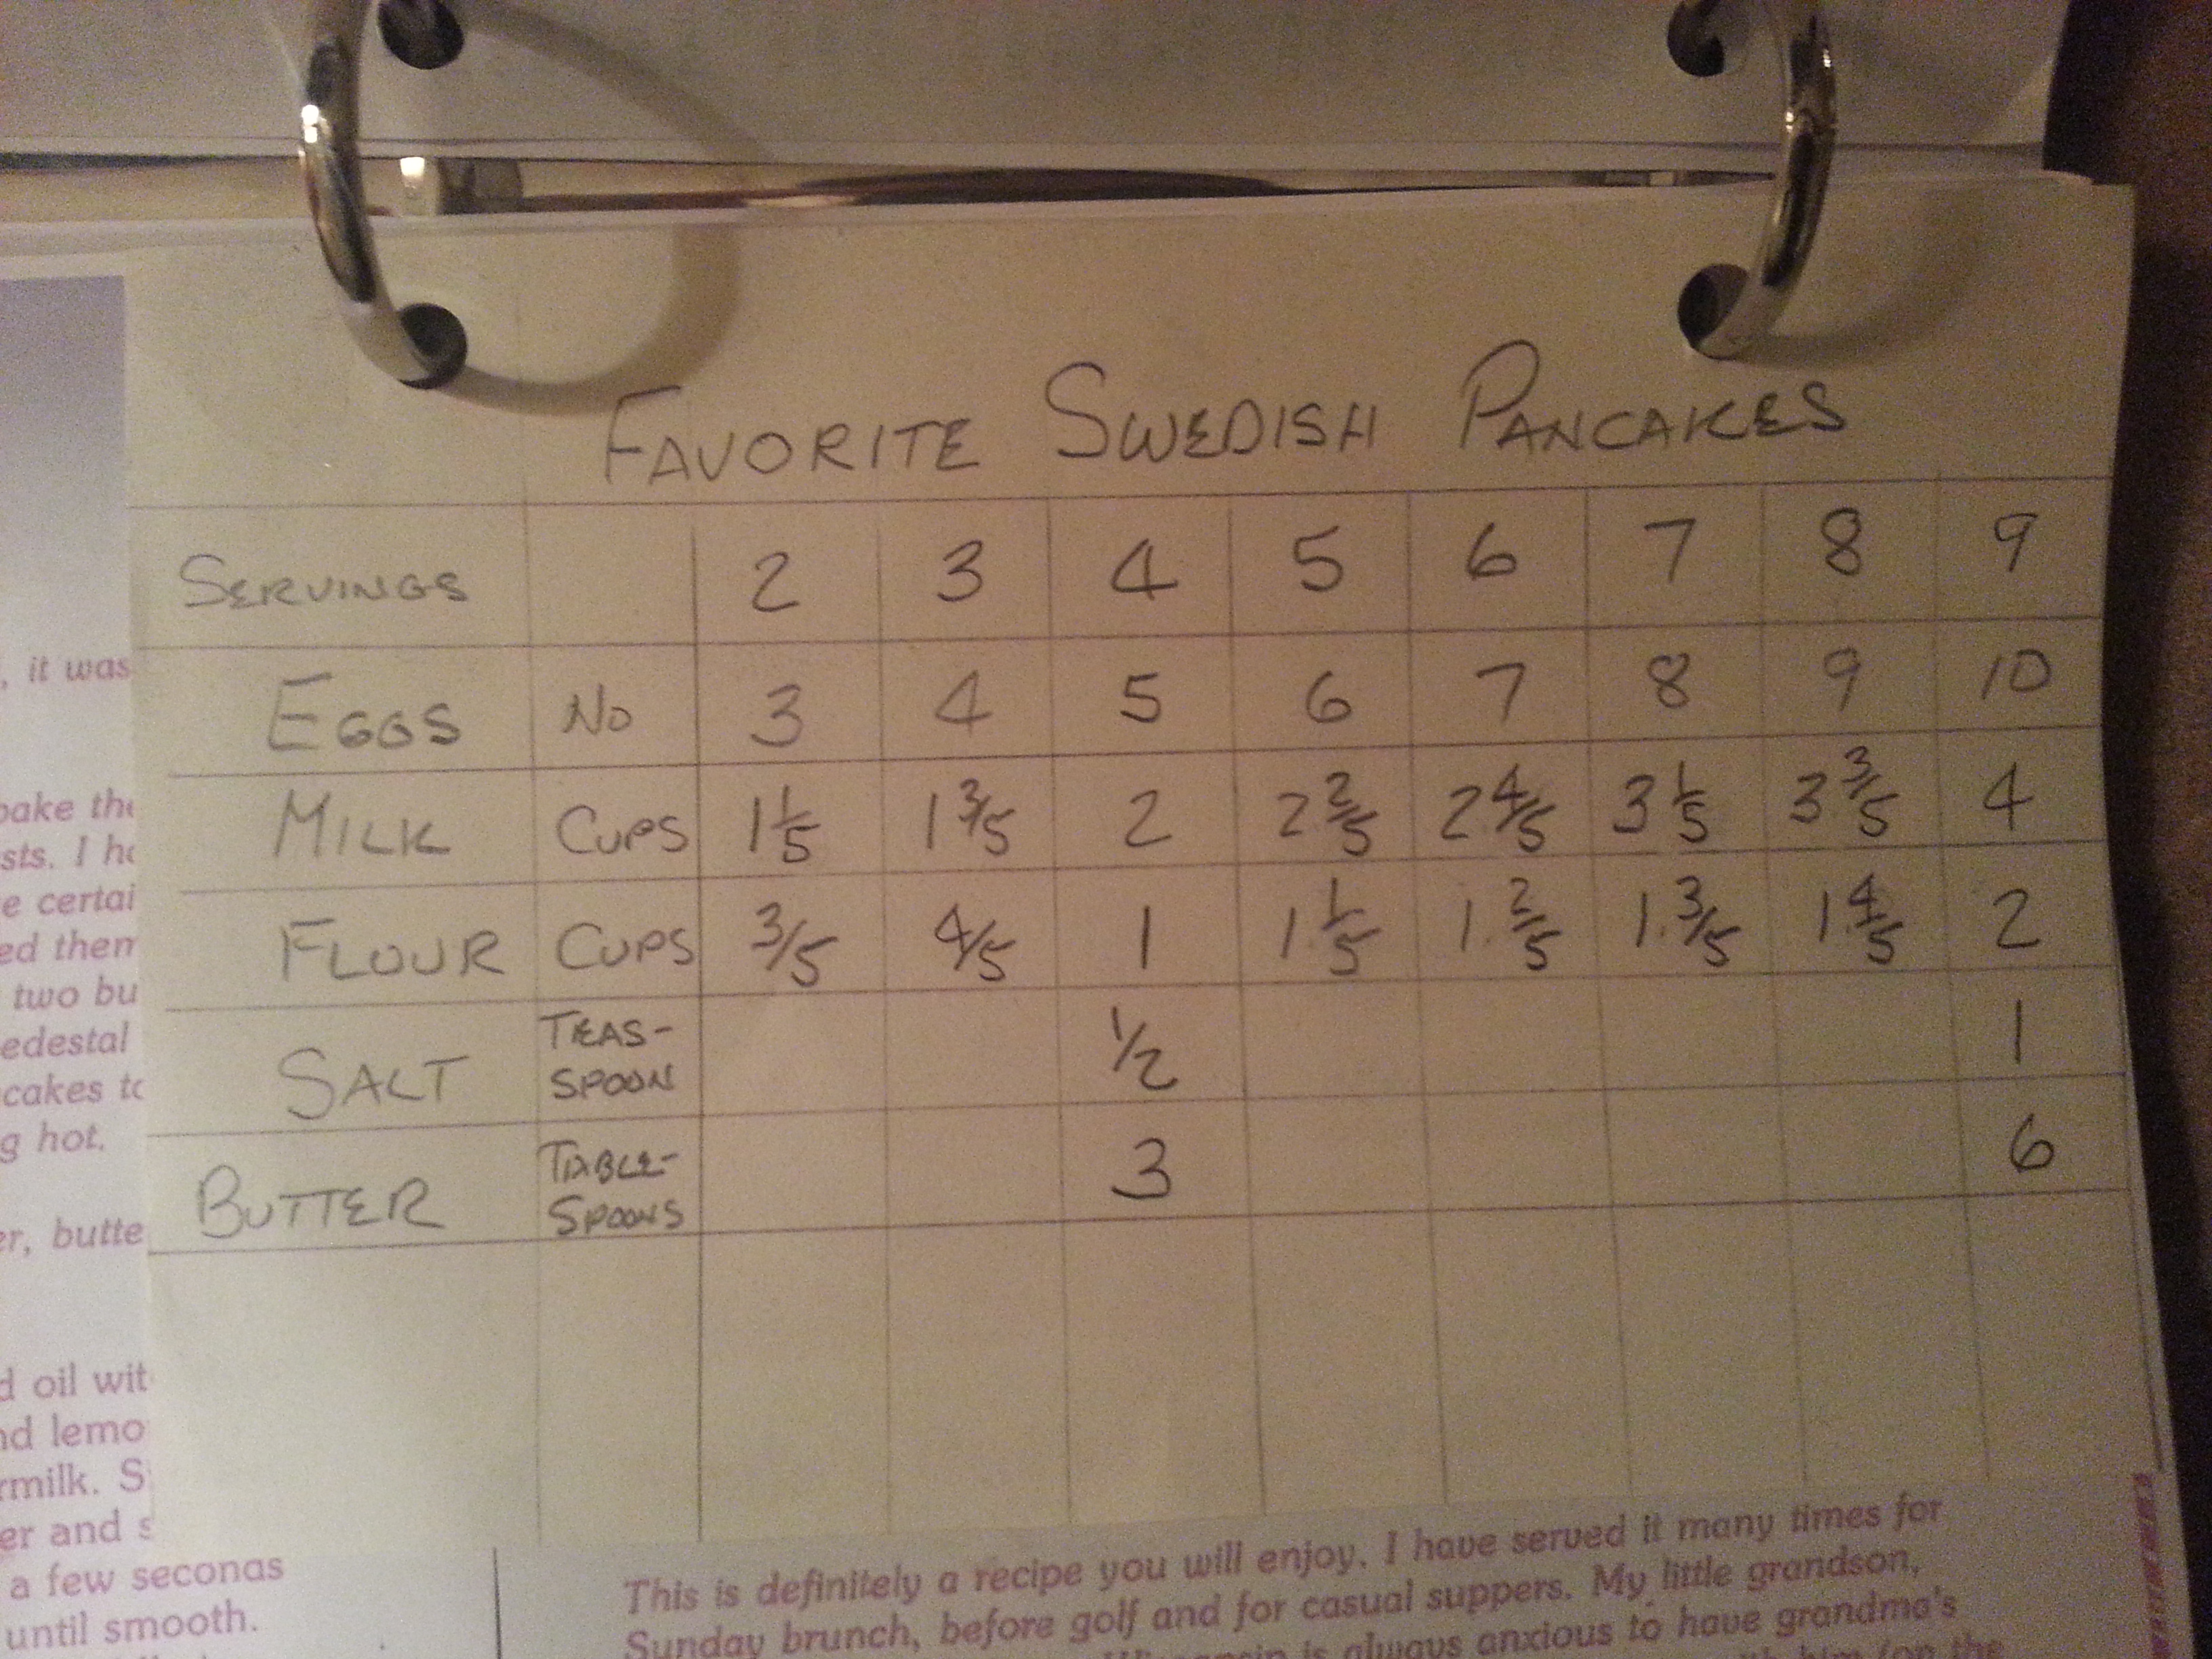 FAVORITE SWEDISH PANCAKES
SERVINGS 2 3 4 5 6 7 8 9
EGGS NO 3 4 5 6 7 8 9 10
MILK CUPS 1 1/5 1 3/5 2 2 2/5 2 4/5 3 1/5 3 3/5 4
FLOUR CUPS 3/5 4/5 1 1 1/5 1 2/5 1 3/5 1 4/5 2
SALT TEAS-SPOON 1/2 1
BUTTER TABLE-SPOONS 3 6
, it was
bake the
sts. I
e certai
ed them
two bu
edestal
cakes to
g hot.
er, butte
d oil wit
nd lemo
rmilk. S
er and s
a few seconds
until smooth.
This is definitely a recipe you will enjoy. I have served it many times for
Sunday brunch, before golf and for casual suppers. My little grandson,
is always anxious to have grandma's
with him (on the